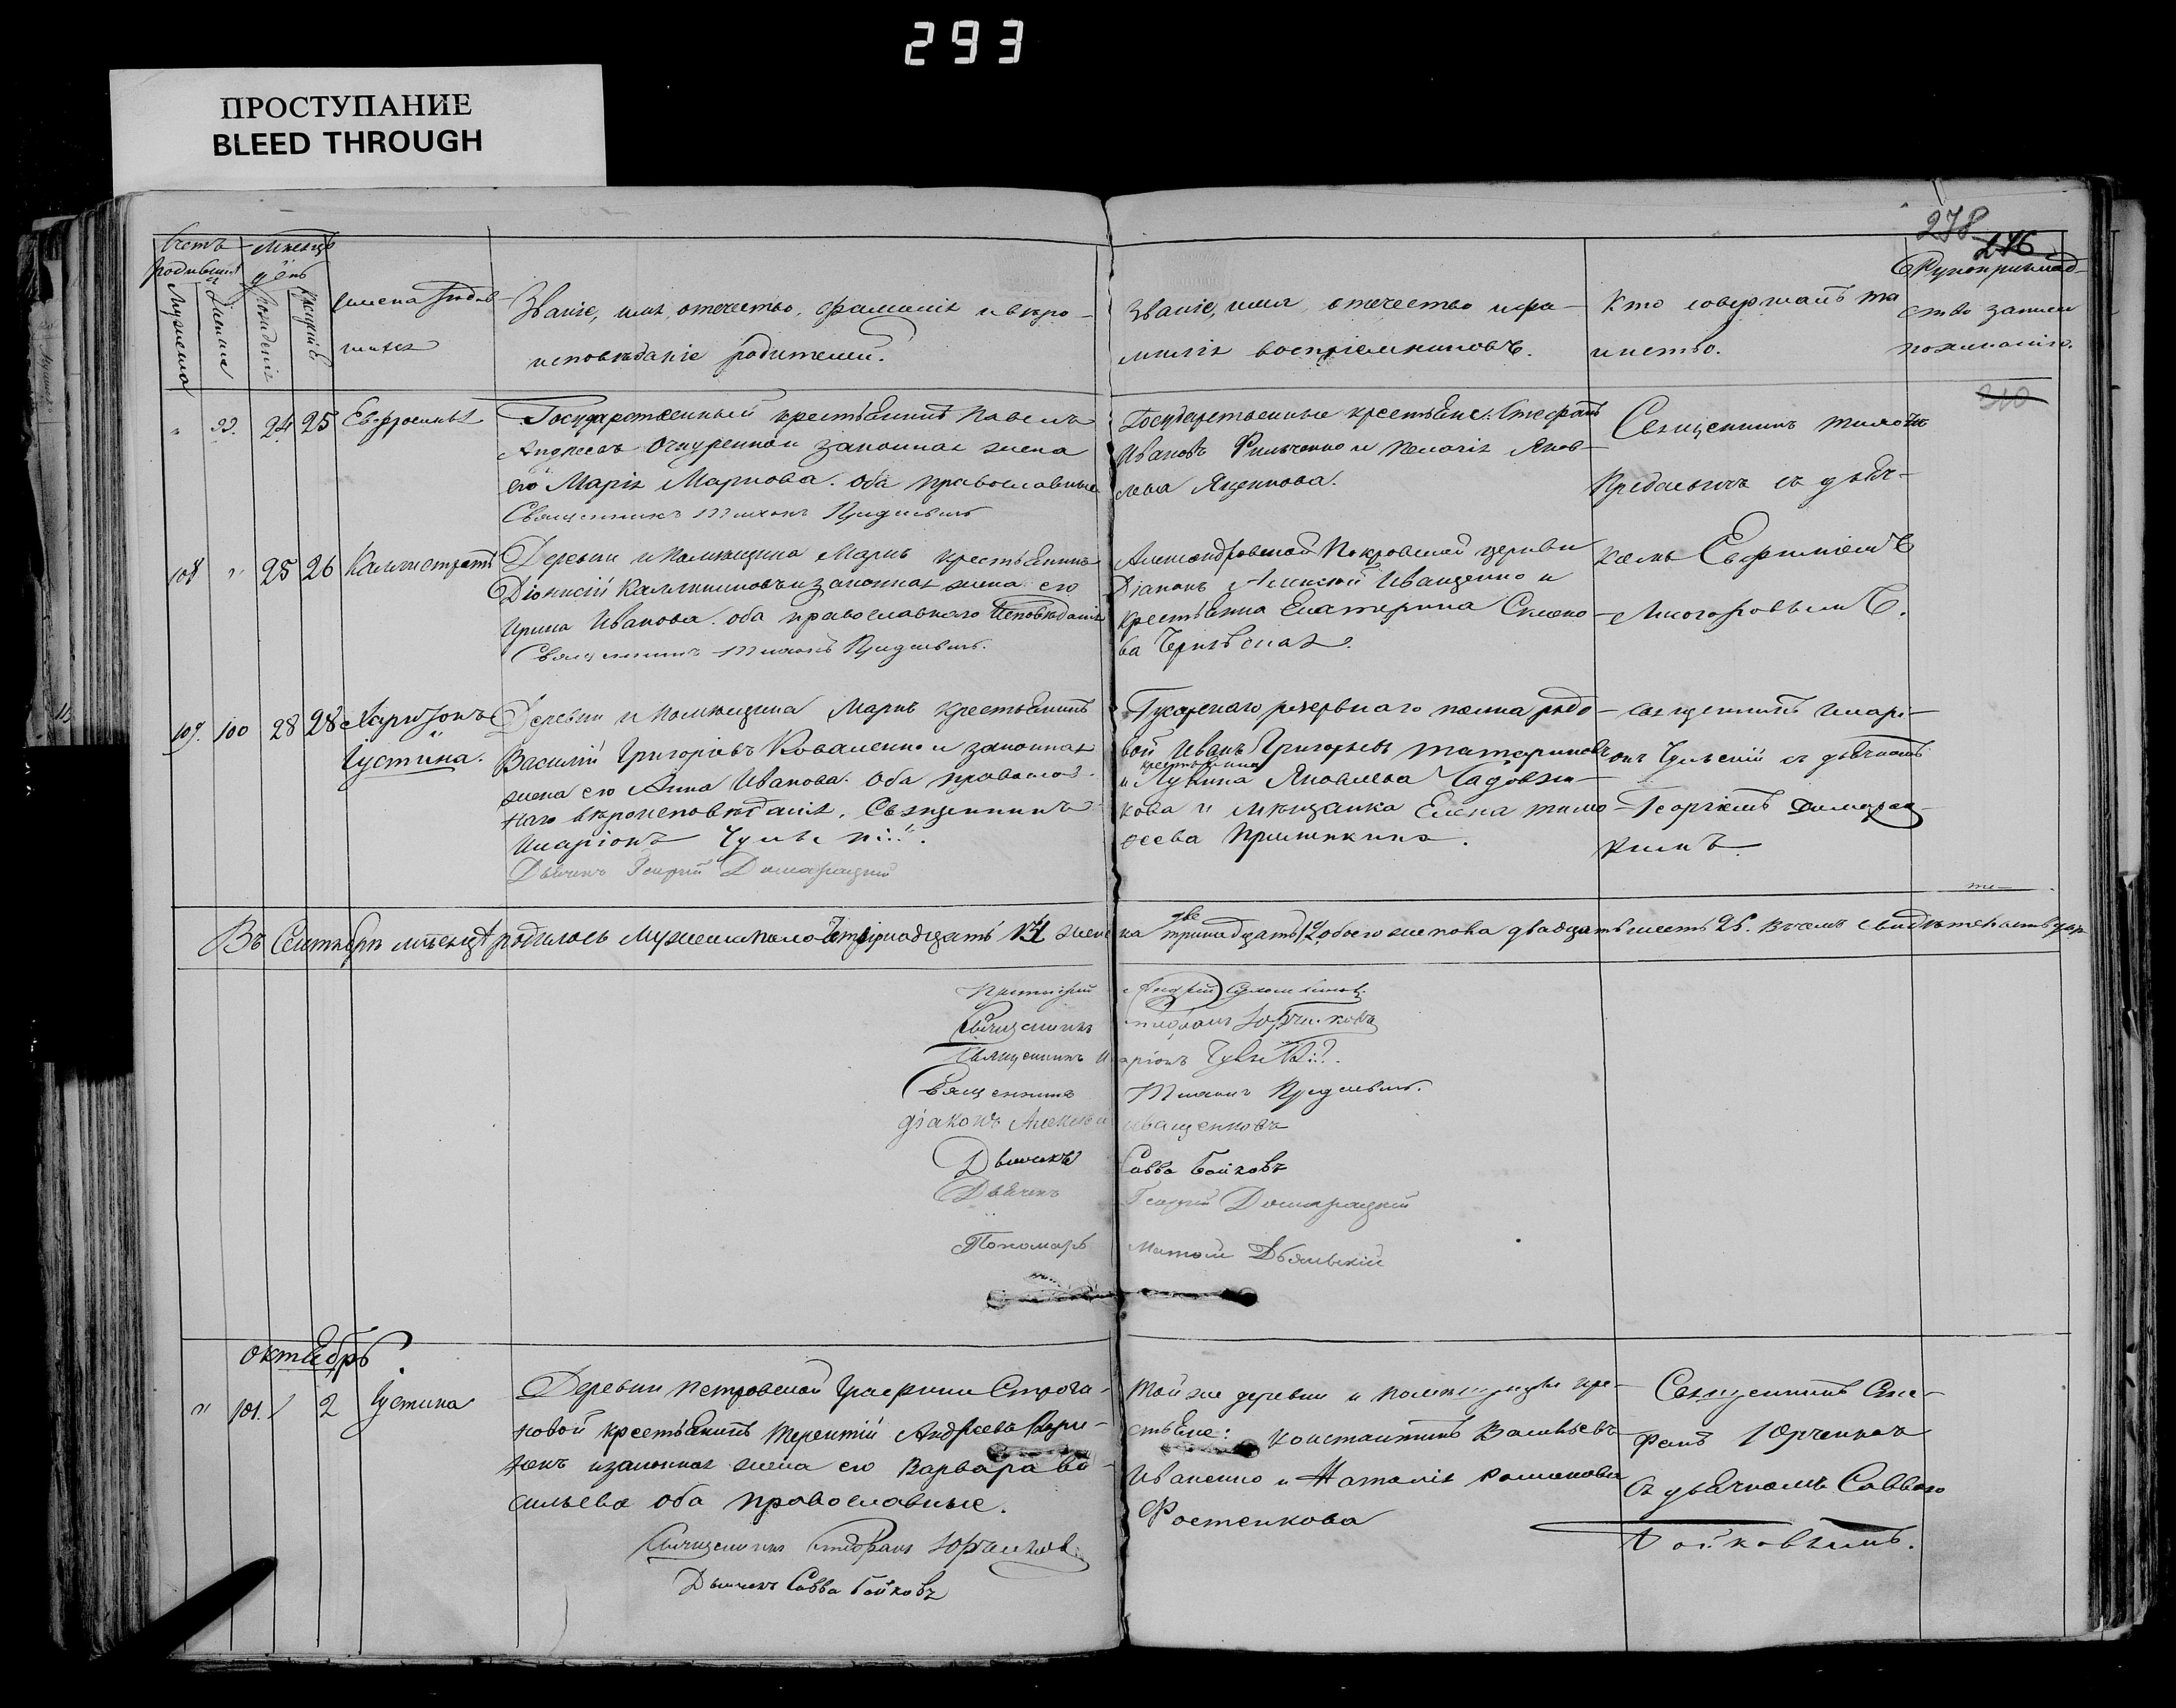 293
ПРОСТУПАНИЕ
BLEED THROUGH
278
276
Счетъ родившихся
Мужеска
Женска
Мѣсяцъ и день
Рожденія
Крещенія
Имена родив-
шихся
Званіе, имя, отчество, фамилія и вѣро-
исповѣданіе родителей.
Званіе, имя, отчество и фа-
милія воспріемниковъ.
Кто совершалъ та
инство.
Рукоприклад-
ство записи
по желанію.
310
" 99. 24 25 Евфросинія
Государственный крестьянинъ Павелъ
Андреевъ и законная жена
его Марія Маркова. Оба православные
Священникъ Тихонъ
Государственные крестьяне: Стефанъ
Ивановъ Фильченко и Пелагія Яков-
лева Яценкова.
Священникъ Тихонъ
съ дьяч-
108 " 25 26 Каллистратъ
Деревни помѣщика Маркъ крестьянинъ
Діонисій Каллиниковъ и законная жена его
Ирина Иванова. оба православнаго исповѣданія
Священникъ Тихонъ
Александровской Покровской церкви
Діаконъ Алексій Иващенко и
крестьянка Екатерина
ва
комъ Евфиміемъ
Многоровымъ.
109. 100 28 28 Харитонъ
Іустина.
Деревни помѣщика Маркъ крестьянинъ
Василій Григоріевъ Коваленко и законная
жена его Анна Иванова. Оба православ-
наго вѣроисповѣданія. Священникъ
Иларіонъ
Дьячекъ Георгій Домарацкій
Гусарскаго резервнаго полка рядо-
вой Иванъ Григорьевъ Татариновъ
крестьянка
и Лукина Яковлева
кова и мѣщанка Елена Тимо-
ѳеева
священникъ Иларі-
онъ съ дьячкомъ
Георгіемъ Домарац-
кимъ.
Въ Сентябрѣ мѣсяцѣ родилось мужеска пола четырнадцать 14 женска двенадцать 12 обоего же пола двадцать шесть 26. Въ чемъ свидѣтельствуемъ
Протоіерей Андрей
Священникъ Стефанъ Юрченковъ
Священникъ Иларіонъ
Священникъ Тихонъ
діаконъ Алексѣй Иващенковъ
Дьячекъ Савва Бойковъ
Дьячекъ Георгій Домарацкій
Пономарь
октябрь
" 101. 1 2 Іустина
Деревни Петровской Графини Строга-
новой крестьянинъ Терентій Андреевъ
и законная жена его Варвара Ва-
сильева оба православные.
Священникъ Стефанъ Юрченковъ
Дьячекъ Савва Бойковъ
Той же деревни и помѣщицы кре-
стьяне: Константинъ Васильевъ
Иваненко и Наталія Романова
Фостенкова
Священникъ Сте-
фанъ Юрченковъ
съ дьячкомъ Саввою
Бойковымъ.